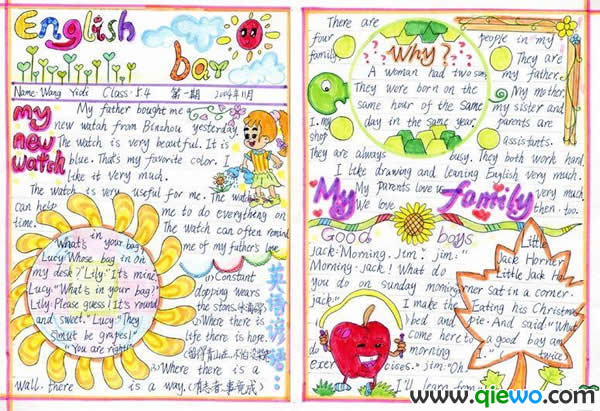 English
bar
Name: Wang Yidi Class: 5.4 第一期 2004年11月
my
new
watch
My father bought me a
new watch from Binzhou yesterday.
The watch is very beautiful. It is
blue. That's my favorite color. I
like it very much.
The watch is very useful for me. The watch
can help me to do everything on
time. The watch can often remind
me of my father's love
What's in your bag?
Lucy: Whose bag in on
my desk? Lily: It's mine.
Lucy: "What's in your bag?"
Lily: Please guess! It's round
and sweet." Lucy: "They
must be grapes!"
"You are right!"
英语谚语:
(1) Constant
dopping wears
the stone.
(2) Where there is
life there is hope.
(3) Where there is a
wall. there is a way. (有志者.事竟成)
There are four people in my
family. They are
my father.
My mother
my sister and
I. my parents are
shop assistants.
They are always busy. They both work hard.
I like drawing and leaning English very much.
My parents love us very much
We love then. too.
Why?
A woman had two sons
They were born on the
same hour of the same
day in the same year.
My family
Good boys
Jack: Morning. Jim: " Jim: "
Morning. Jack! What do
you do on sunday morning
Jack: " I make the
bed and
come here to
do morning
exercises." Jim: "Oh.
I'll learn from
Little
Jack Horner
Little Jack Ho
rner sat in a corner.
Eating his Christmas
pie. And said: "What
a good boy am
I."
twice
www.qiewo.com